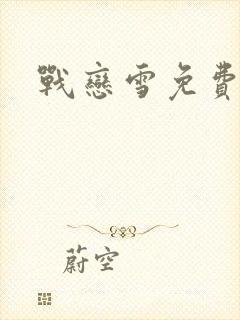 戰戀雪免費
蔚空